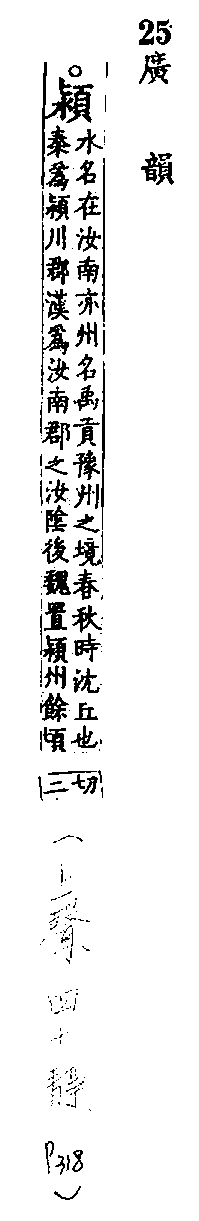 25廣韻
○潁水名在汝南亦州名禹貢豫州之境春秋時沈丘也
秦為潁川郡漢為汝南郡之汝陰後魏置潁州餘頃
切三
(上聲 四十靜 P318)